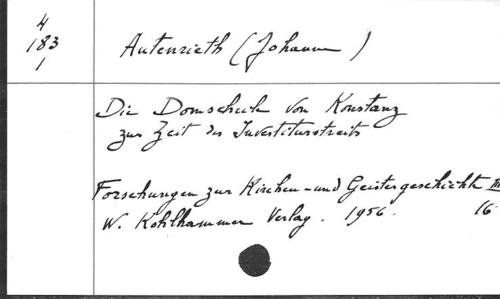 4
183
1
Autenrieth (Johanne)
Die Domschule von Konstanz
zur Zeit des Investiturstreits
Forschungen zur Kirchen- und Geistesgeschichte III
W. Kohlhammer Verlag. 1956. 16